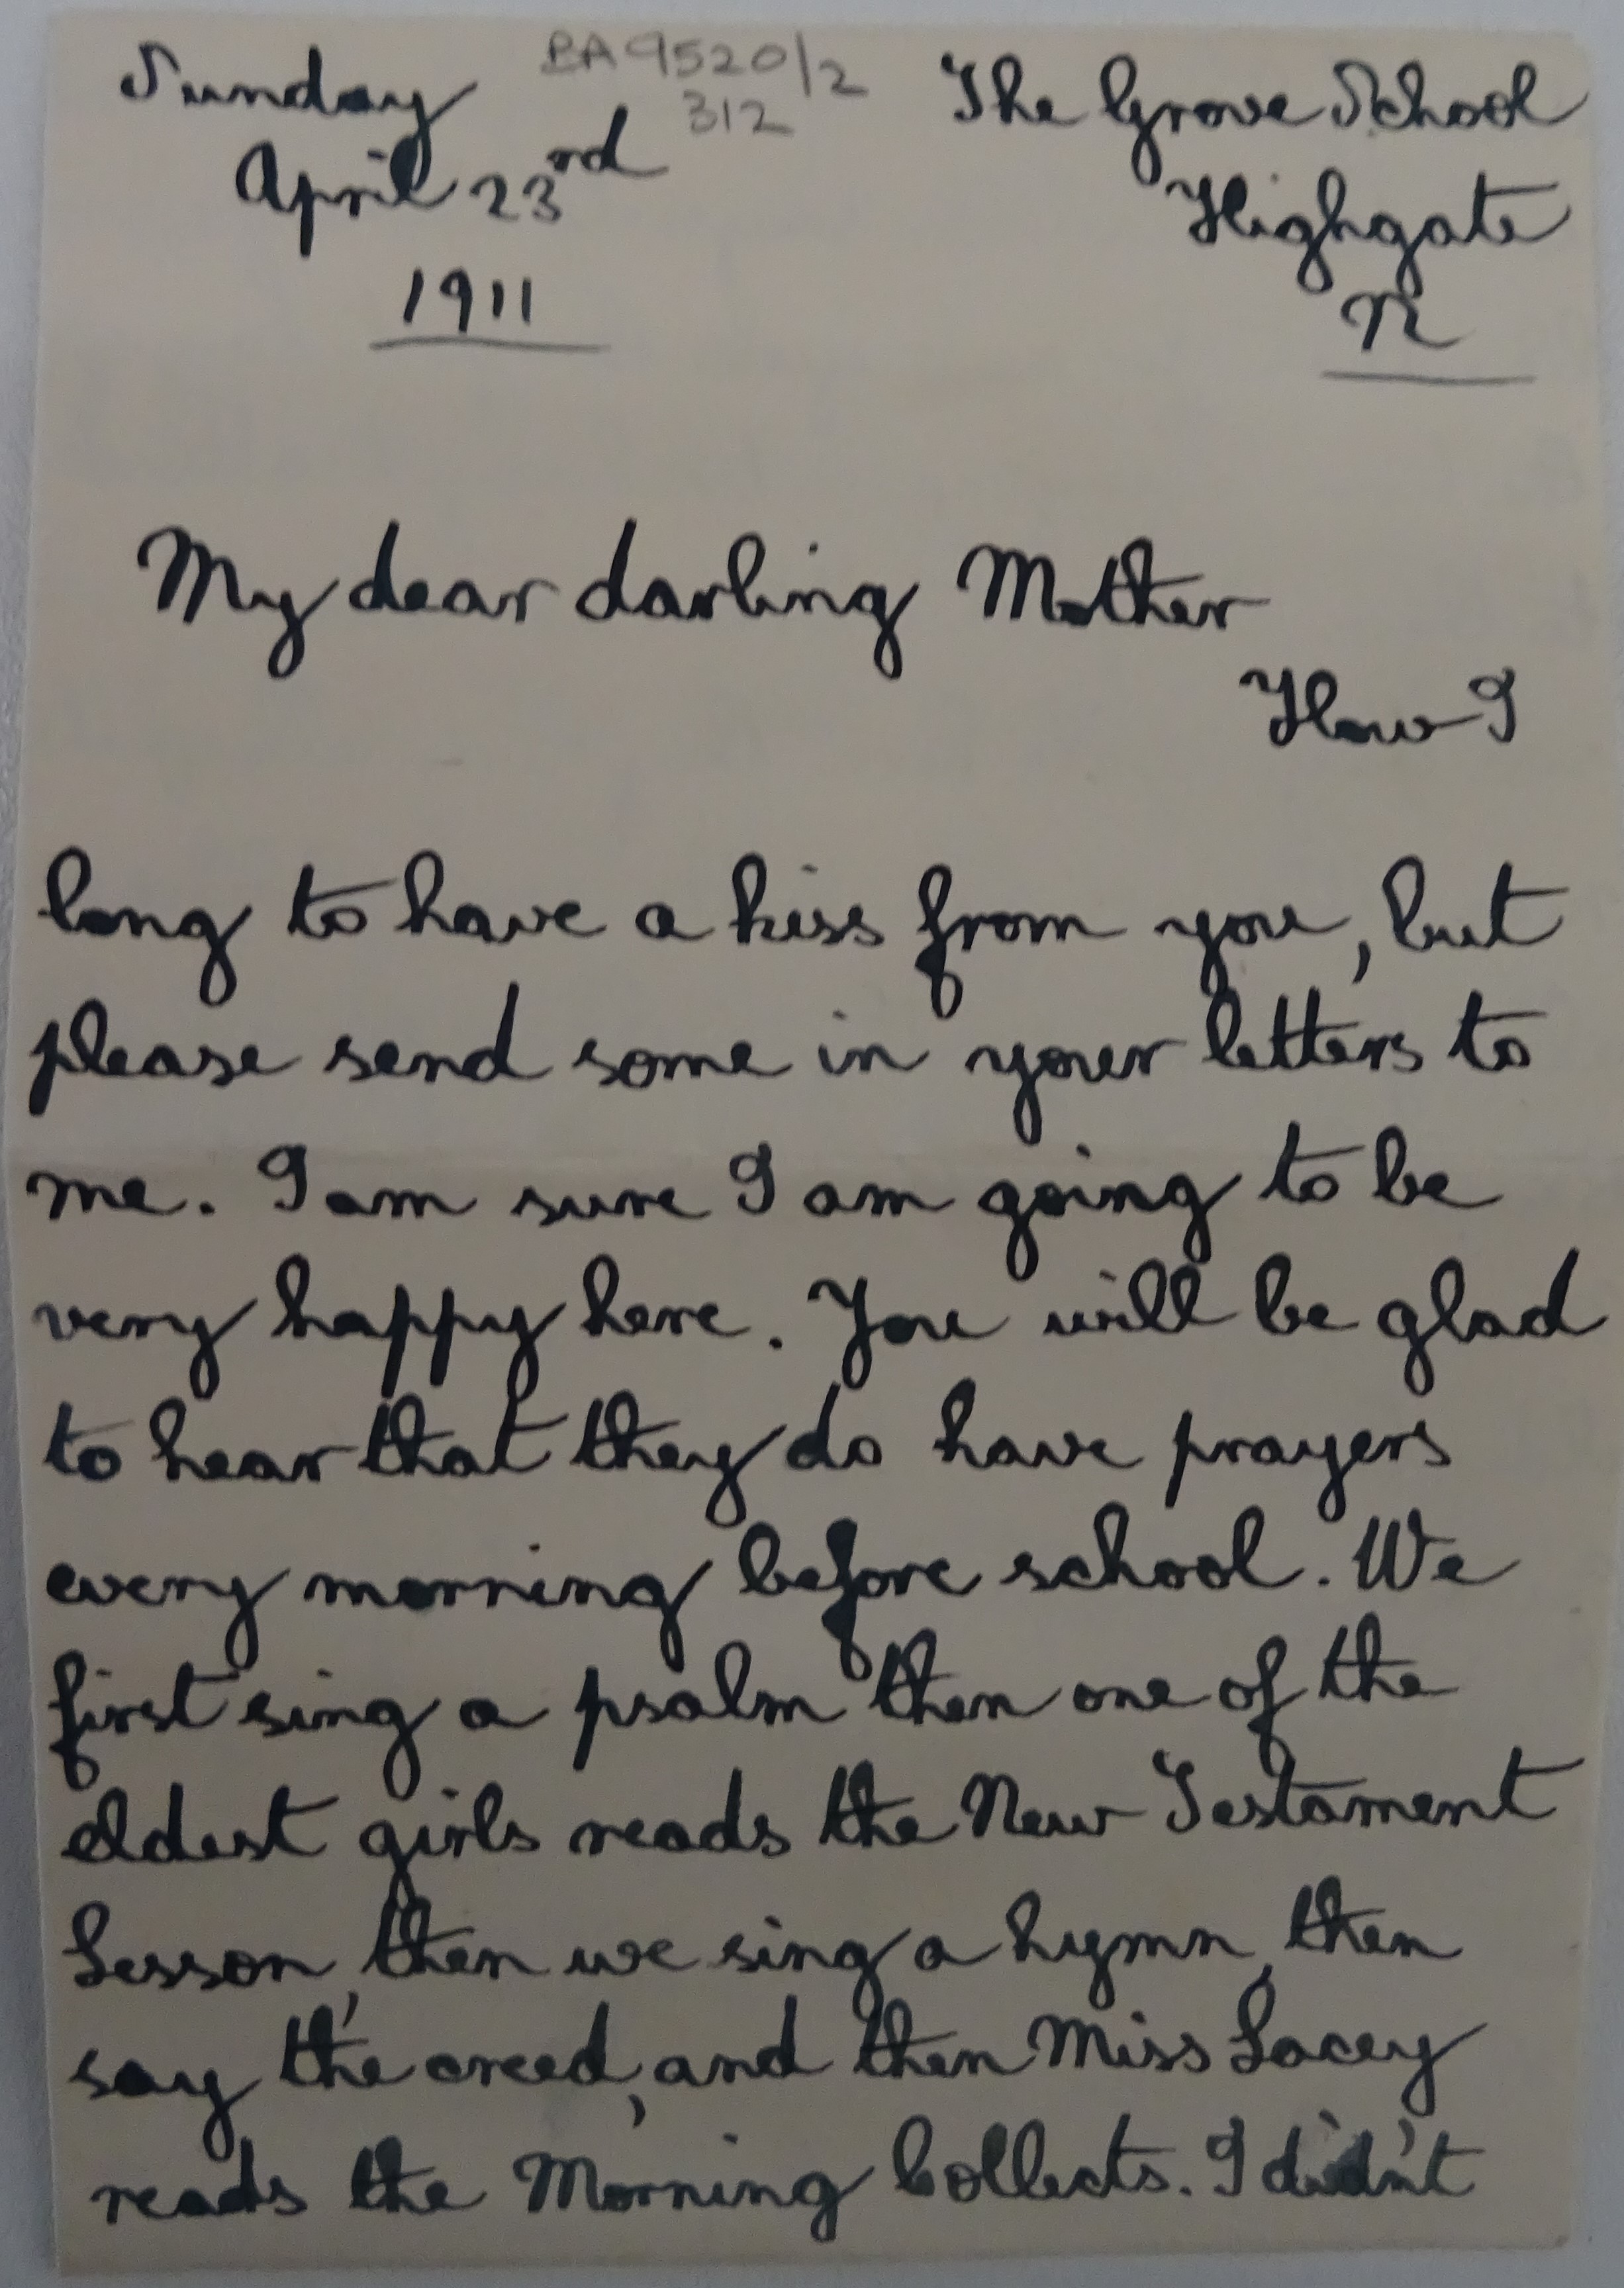 Sunday BA 9520/2 The Grove School
April 23rd 312 Highgate
1911 N
My dear darling Mother
How I
long to have a kiss from you, but
please send some in your letters to
me. I am sure I am going to be
very happy here. You will be glad
to hear that they do have prayers
every morning before school. We
first sing a psalm then one of the
eldest girls reads the New Testament
Lesson, then we sing a hymn, then
say the creed, and then Miss Lacey
reads the Morning Collects. I didn't